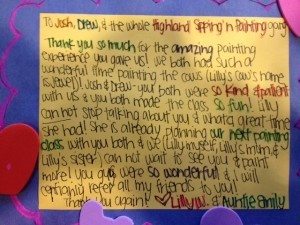 To Josh, Drew, & the whole Highland Sippin' n Painting gang
Thank you so much for the amazing painting
experience you gave us! We both had such a
wonderful time painting the cows (Lilly's cow's name
is Jewel)! Josh & Drew - your both were so kind & patient
with us & you both made the class so fun! Lilly
can not stop talking about you & what a great time
she had! She is already planning our next painting
class with you both & we (Lilly, myself, Lilly's mum, &
Lilly's sister) can not wait to see you & paint
more! You guys were so wonderful & I will
certainly refer all my friends to you!
Thank you again! Lilly W. & Auntie Emily